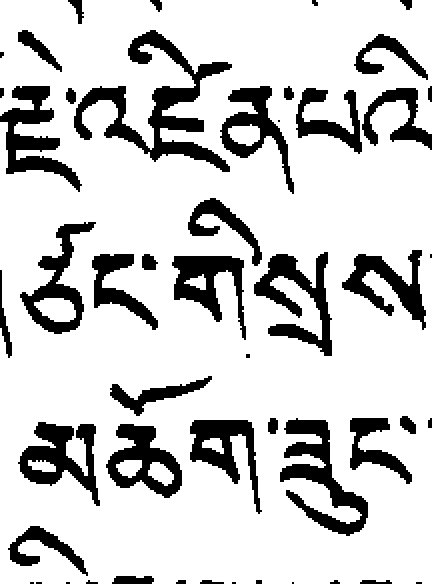 རྗེ་འཛིན་པའི
ཙང་གི་སྲས
མཆོག་ཟུང་